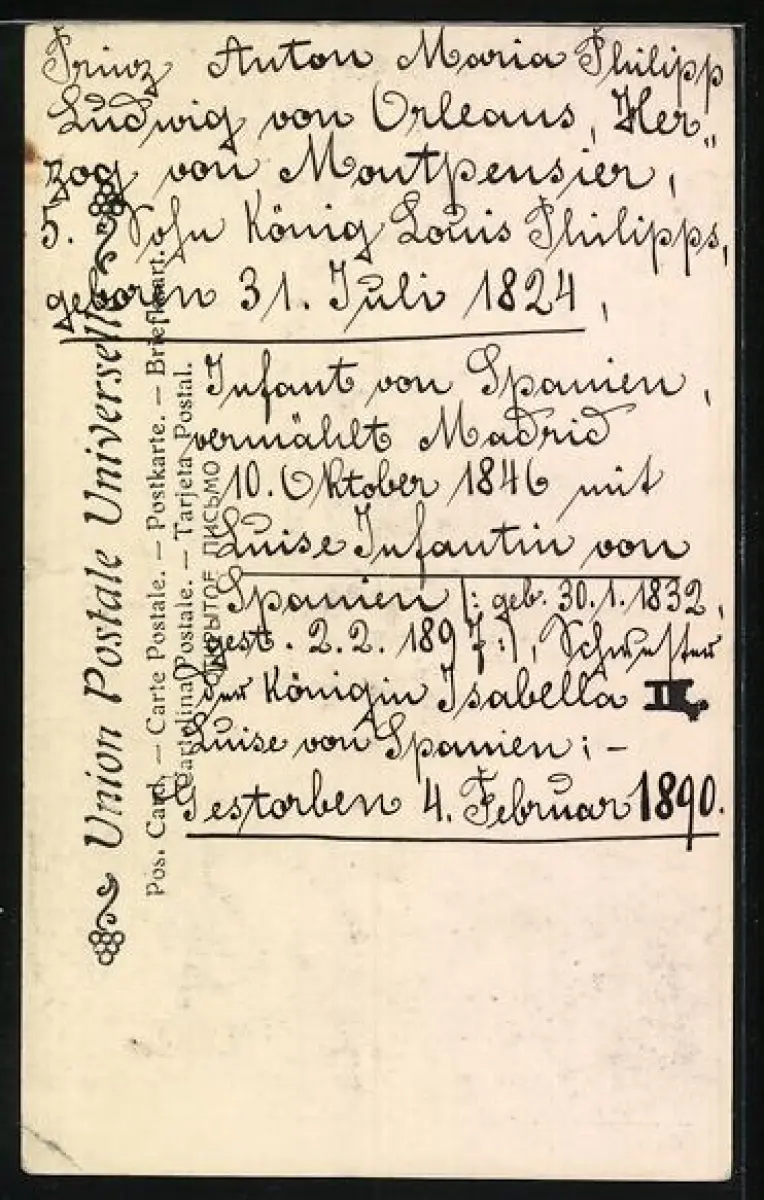 Prinz Anton Maria Philipp
Ludwig von Orleans, Her„
zog von Montpensier,
5. Sohn König Louis Philipps,
geboren 31. Juli 1824,
Infant von Spanien,
vermählt Madrid
10. Oktober 1846 mit
Luise Infantin von
Spanien /: geb. 30.1.1832,
gest. 2.2.1897 :/, Schwester
der Königin Isabella II,
Luise von Spanien; –
Gestorben 4. Februar 1890.
Union Postale Universelle
Pos. Card. — Carte Postale. — Postkarte. — Briefkaart.
Cartolina Postale. — Tarjeta Postal.
ОТКРЫТОЕ ПИСЬМО